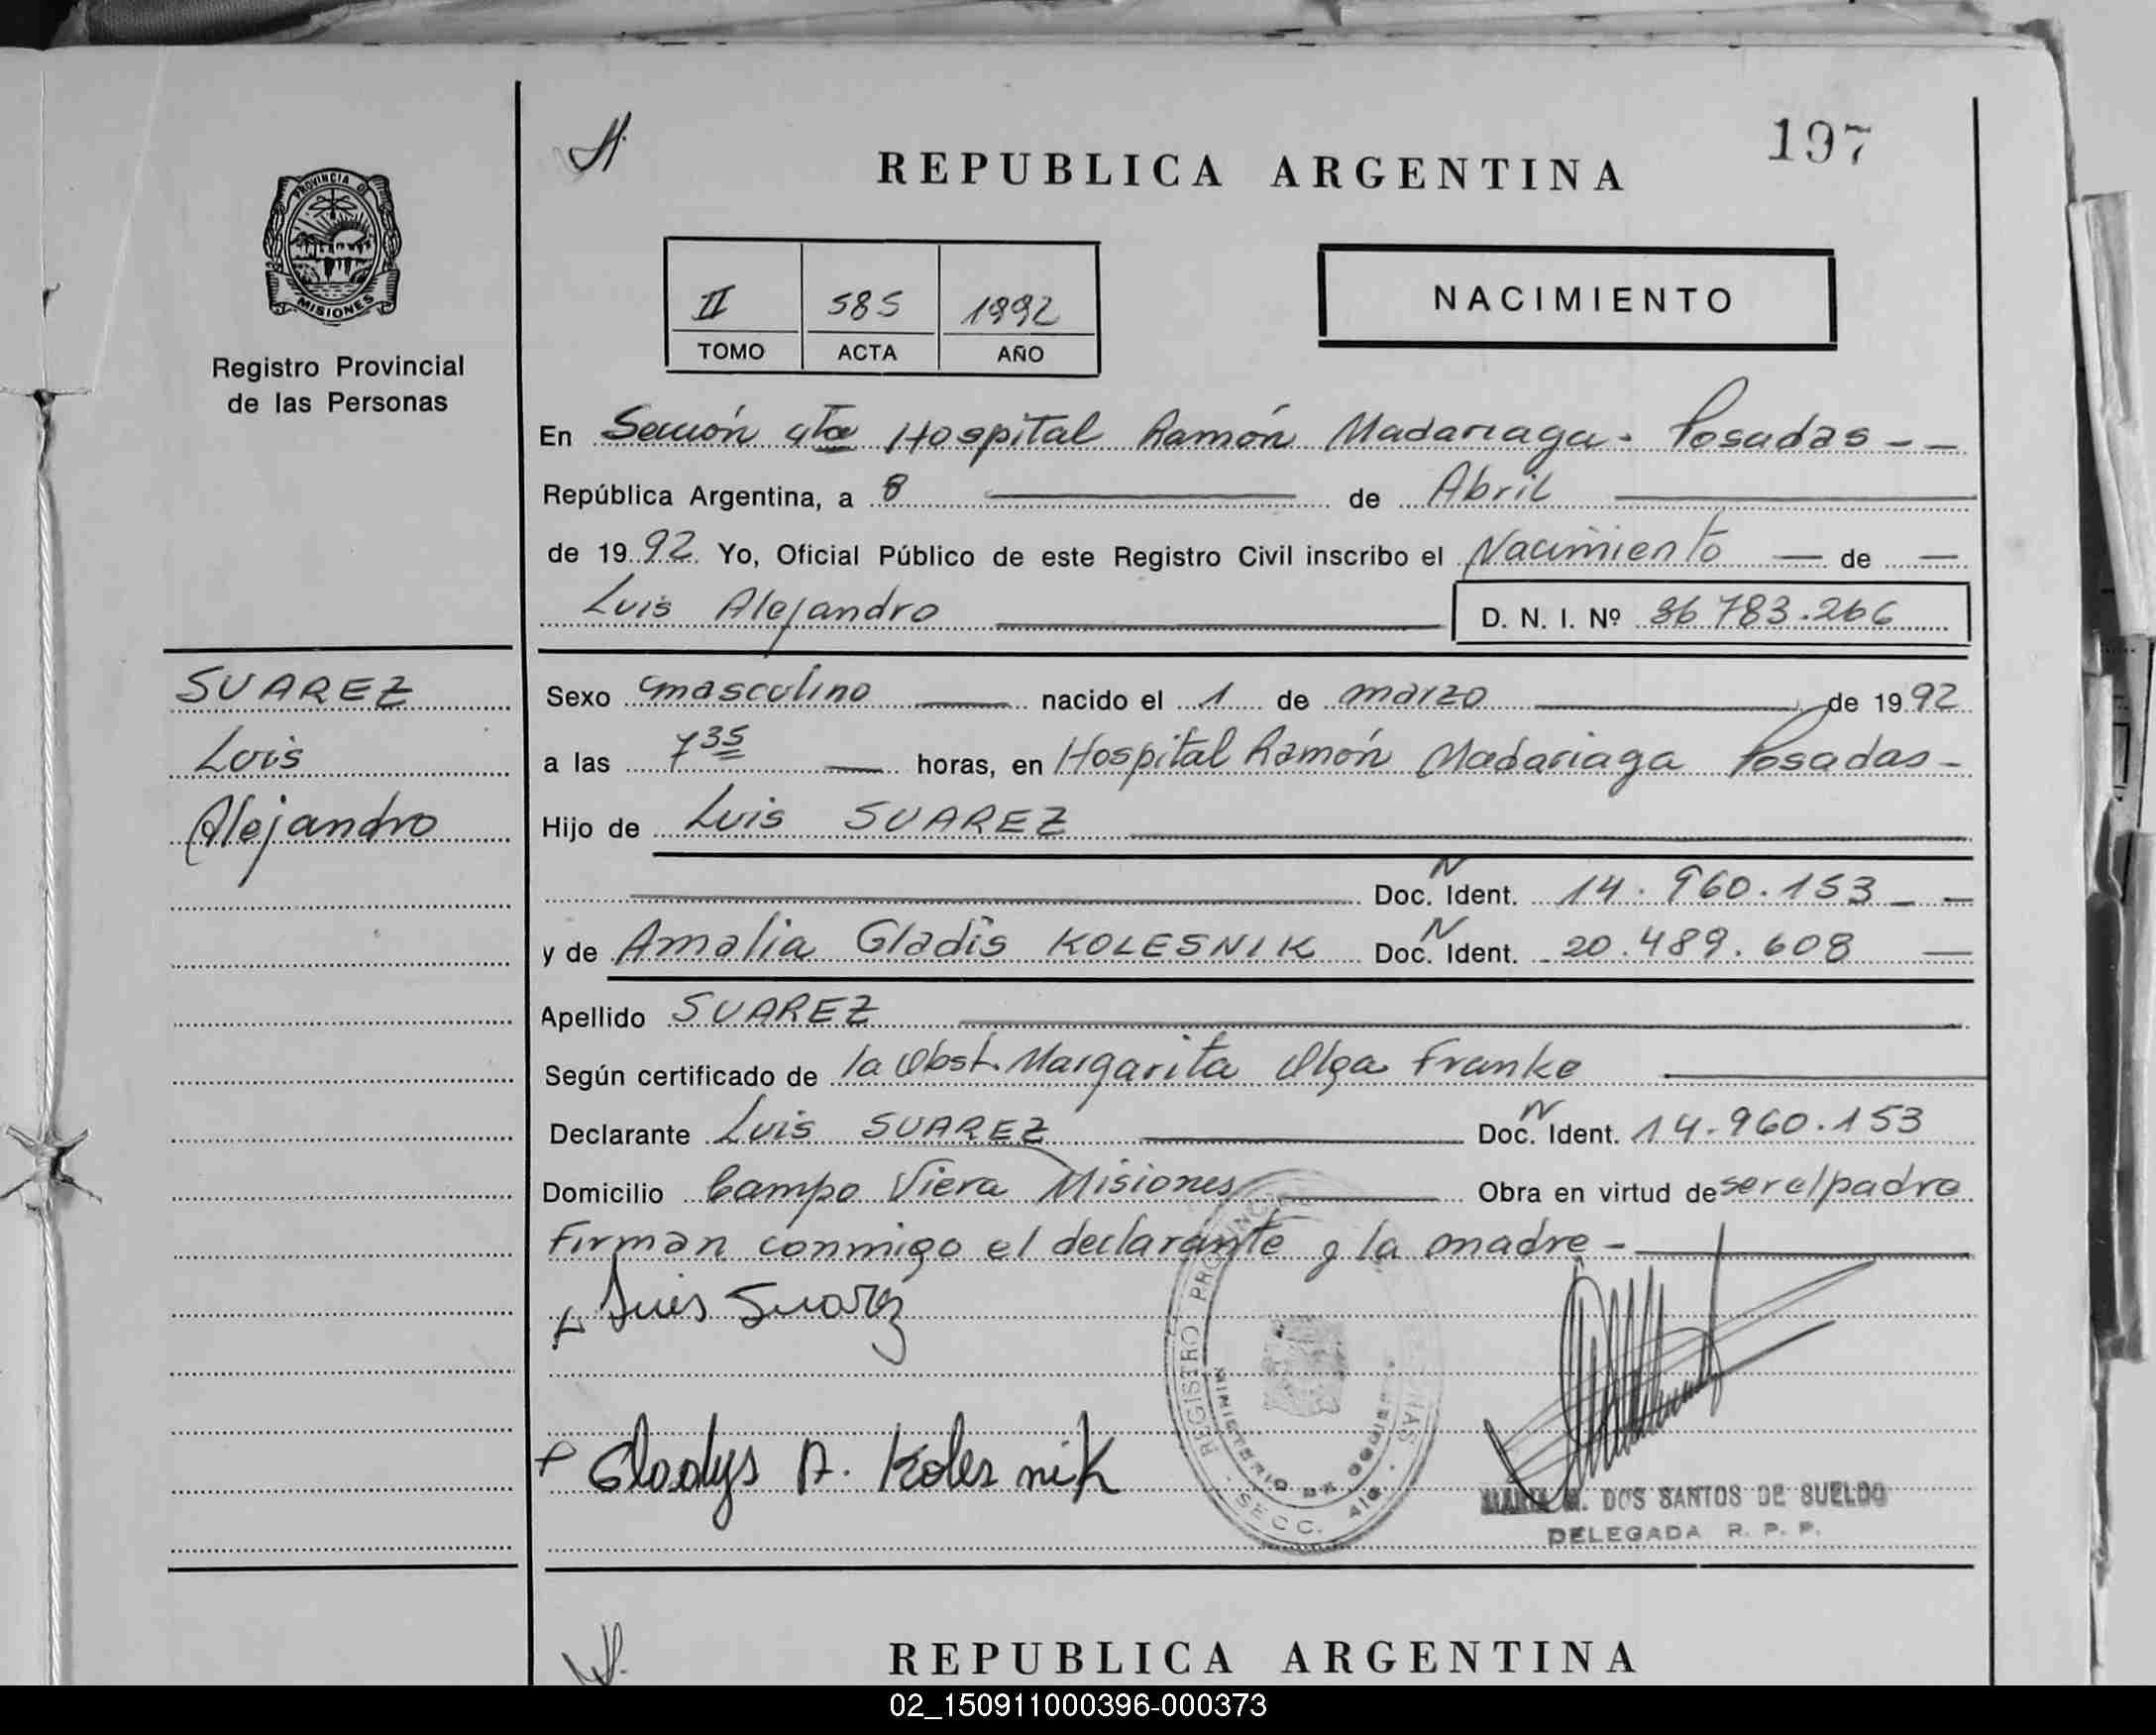 197
REPUBLICA ARGENTINA
PROVINCIA DE MISIONES
Registro Provincial
de las Personas
II 585 1992
TOMO ACTA AÑO
NACIMIENTO
En Sección 4ta Hospital Ramón Madariaga - Posadas - -
República Argentina, a 8 de Abril
de 1992 Yo, Oficial Público de este Registro Civil inscribo el Nacimiento — de —
Luis Alejandro D. N. I. Nº 36 783.266
SUAREZ
Luis
Alejandro
Sexo masculino nacido el 1 de marzo de 1992
a las 7 35 horas, en Hospital Ramón Madariaga Posadas -
Hijo de Luis SUAREZ
Doc. N Ident. 14.960.153 - -
y de Amalia Gladis KOLESNIK Doc. N Ident. 20.489.608 —
Apellido SUAREZ
Según certificado de la Obst. Margarita Olga Franke
Declarante Luis SUAREZ Doc. N Ident. 14.960.153
Domicilio Campo Viera Misiones Obra en virtud de ser el padre
Firman conmigo el declarante y la madre -
Luis Suarez
Gladys A. Kolesnik
REGISTRO PROVINCIAL
MINISTERIO DE GOBIERNO
SECC. 4ta.
MARIA DOS SANTOS DE SUELDO
DELEGADA R. P. P.
REPUBLICA ARGENTINA
02_150911000396-000373